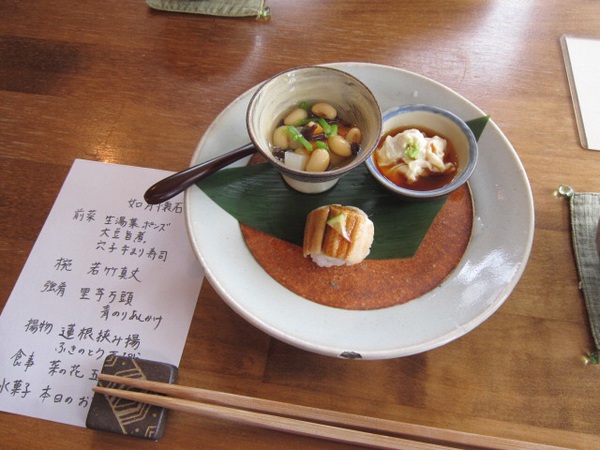 如月懐石
前菜 生湯葉ポンズ
大豆旨煮
穴子手まり寿司
椀 若竹真丈
強肴 里芋万頭
青のりあんかけ
揚物 蓮根挟み揚
ふきのとう
食事 菜の花
水菓子 本日のお